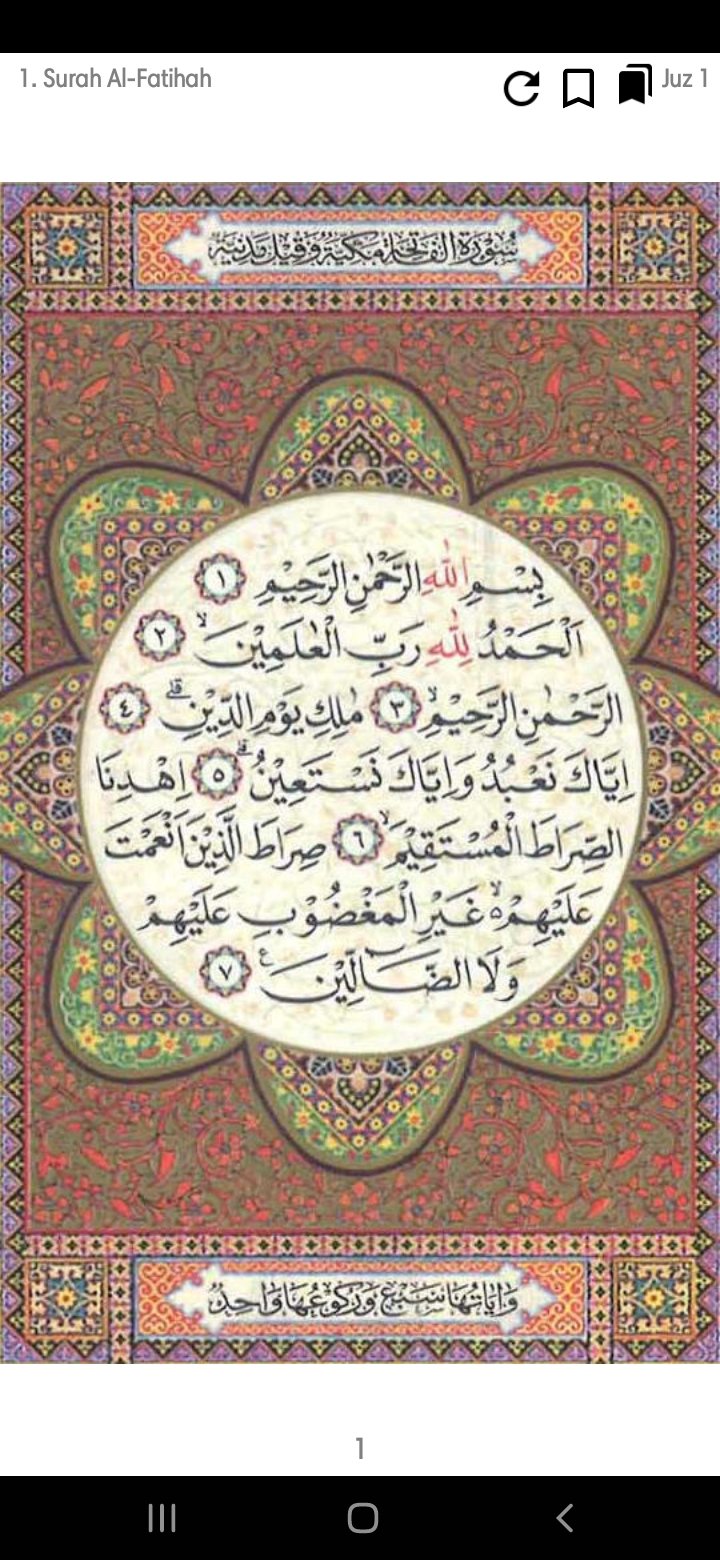 1. Surah Al-Fatihah
Juz 1
سُوْرَةُ الْفَاتِحَةِ مَكِّيَّةٌ وَقِيْلَ مَدَنِيَّةٌ
بِسْمِ اللّٰهِ الرَّحْمٰنِ الرَّحِيْمِ ١
اَلْحَمْدُ لِلّٰهِ رَبِّ الْعٰلَمِيْنَ ۙ ٢
الرَّحْمٰنِ الرَّحِيْمِ ۙ ٣ مٰلِكِ يَوْمِ الدِّيْنِ ۗ ٤
اِيَّاكَ نَعْبُدُ وَاِيَّاكَ نَسْتَعِيْنُ ۗ ٥ اِهْدِنَا
الصِّرَاطَ الْمُسْتَقِيْمَ ۙ ٦ صِرَاطَ الَّذِيْنَ اَنْعَمْتَ
عَلَيْهِمْ ۙ۵ غَيْرِ الْمَغْضُوْبِ عَلَيْهِمْ
وَلَا الضَّاۤلِّيْنَ ࣖ ٧
وَاٰيَاتُهَا سَبْعٌ وَرُكُوْعُهَا وَاحِدٌ
1